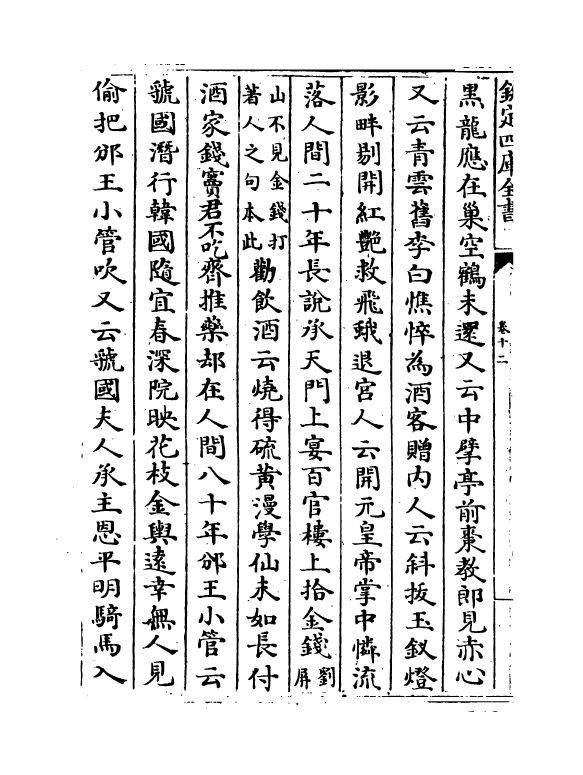 欽定四庫全書
卷十二
黒龍應在巢空鶴未還又云中擘亭前棗教郎見赤心
又云青雲舊李白憔悴為酒客贈内人云斜拔玉釵燈
影畔剔開紅艷救飛蛾退宫人云開元皇帝掌中憐流
落人間二十年長說承天門上宴百官樓上拾金錢劉屏
山不見金錢打
著人之句本此
勸飲酒云燒得硫黄漫學仙未如長付
酒家錢竇君不吃齊推藥却在人間八十年邠王小管云
虢國潛行韓國隨宜春深院映花枝金輿遠幸無人見
偷把邠王小管吹又云虢國夫人承主恩平明騎馬入